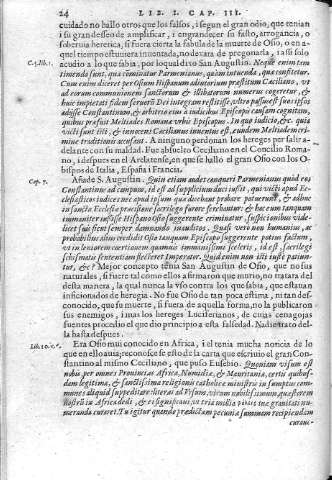 24 LIB. I. CAP. III.
cuidado no hallo otros que los falsos, i segun el gran odio, que tenian
i su gran desseo de amplificar, i engrandecer su fasto, arrogancia, o
sobervia heretica, si fuera cierta la fabula de la muerte de Osio, o en a-
quel tiempo estuviera inventada, no dexara de pregonarla, i assi solo
C. 5. lib. 1. acudio a lo que sabia, por lo qual dixo San Augustin. Neque enim tem
timenda sunt, quæ criminatur Parmenianus, quàm intuenda, quæ confitetur.
Cùm enim diceret per Osium Hispanum adiutum præstitisse Cæciliano, vt
ad eorum communionem sanctorum & illibatorum numerus cogeretur, &
huic impietati fidem servorũ Dei integram restitisse, vltrò passus est suos ipso
adiisse Constantinum, & arbitrio eius à iudicibus Episcopis causam cognitam,
quibus præfuit Meltiades Romanæ vrbis Episcopus. In quo iudicio, & quia
victi sunt isti, & innocens Cæcilianus inventus est, eundem Meltiadem cri-
mine traditionis accusant. A ninguno perdonan los hereges por salir a-
delante con su maldad. Fue absuelto Ceciliano en el Concilio Roma-
no, i despues en el Arelatense, en que se hallo el gran Osio con los O-
bispos de Italia, España i Francia.
Cap. 7. Añade S. Augustin. Quin etiam audet conqueri Parmenianus quid eos
Constantinus ad campum, id est ad supplicium duci iussit, qui victi apud Ec-
clesiasticos iudices nec apud ipsum quæ dicebant probare potuerunt, & adhuc
in sancta Ecclesia præsumptione sacrilego furore ferebantur: & hæc eum tanquam
immaniter iussisse Hispano Osio suggerente criminatur, suspicionibus vide-
licet suis sicut semper damnando inauditos. Quasi verò non humaniùs, ac
probabilius abnui credatis Osio tanquam Episcopo suggerente potius factum,
vt in leniorem coercitionem quamvis immanissimi sceleris, id est sacrilegi
schismatis sententiam flecteret Imperator. Quid enim non isti iustè patiun-
tur, &c? Mejor concepto tenia San Augustin de Osio, que no sus
naturales, si fuerte tal como ellos afirmaron que murio, no tratara del
desta manera, la qual nunca lo vso contra los que sabia, que estavan
inficionados de heregia. No fue Osio de tan poca estima, ni tan des-
conocido, que su muerte, si fuera de aquella forma, no la publicaron
sus enemigos, i mas los hereges Luciferianos, de cuyas cenagosas
fuentes procedio el que dio principio a esta falsedad. Nadie trato del-
la hasta despues.
Lib. 10. c. 6. Era Osio mui conocido en Africa, i el tenia mucha noticia de lo
que en ello avia; reconocese esto de la carta que escrivio el gran Con-
stantino al mismo Ceciliano, que puso Eusebio. Quoniam visum est
nobis per omnes Provincias Africæ, Numidiæ, & Mauritaniæ, certis quibus-
dam legitimæ, & sanctissimæ religionis catholicæ ministris in sumptus com-
munes aliquid suppeditare literas ad Vrsum, virum nobilissimum, quæstorem
nostrũ in Africa dedi, & ei significavi, vt tria millia follis tuæ gravitati nu-
meranda curaret. Tu igitur quando prædictam pecuniæ summam recipiendam
curave-